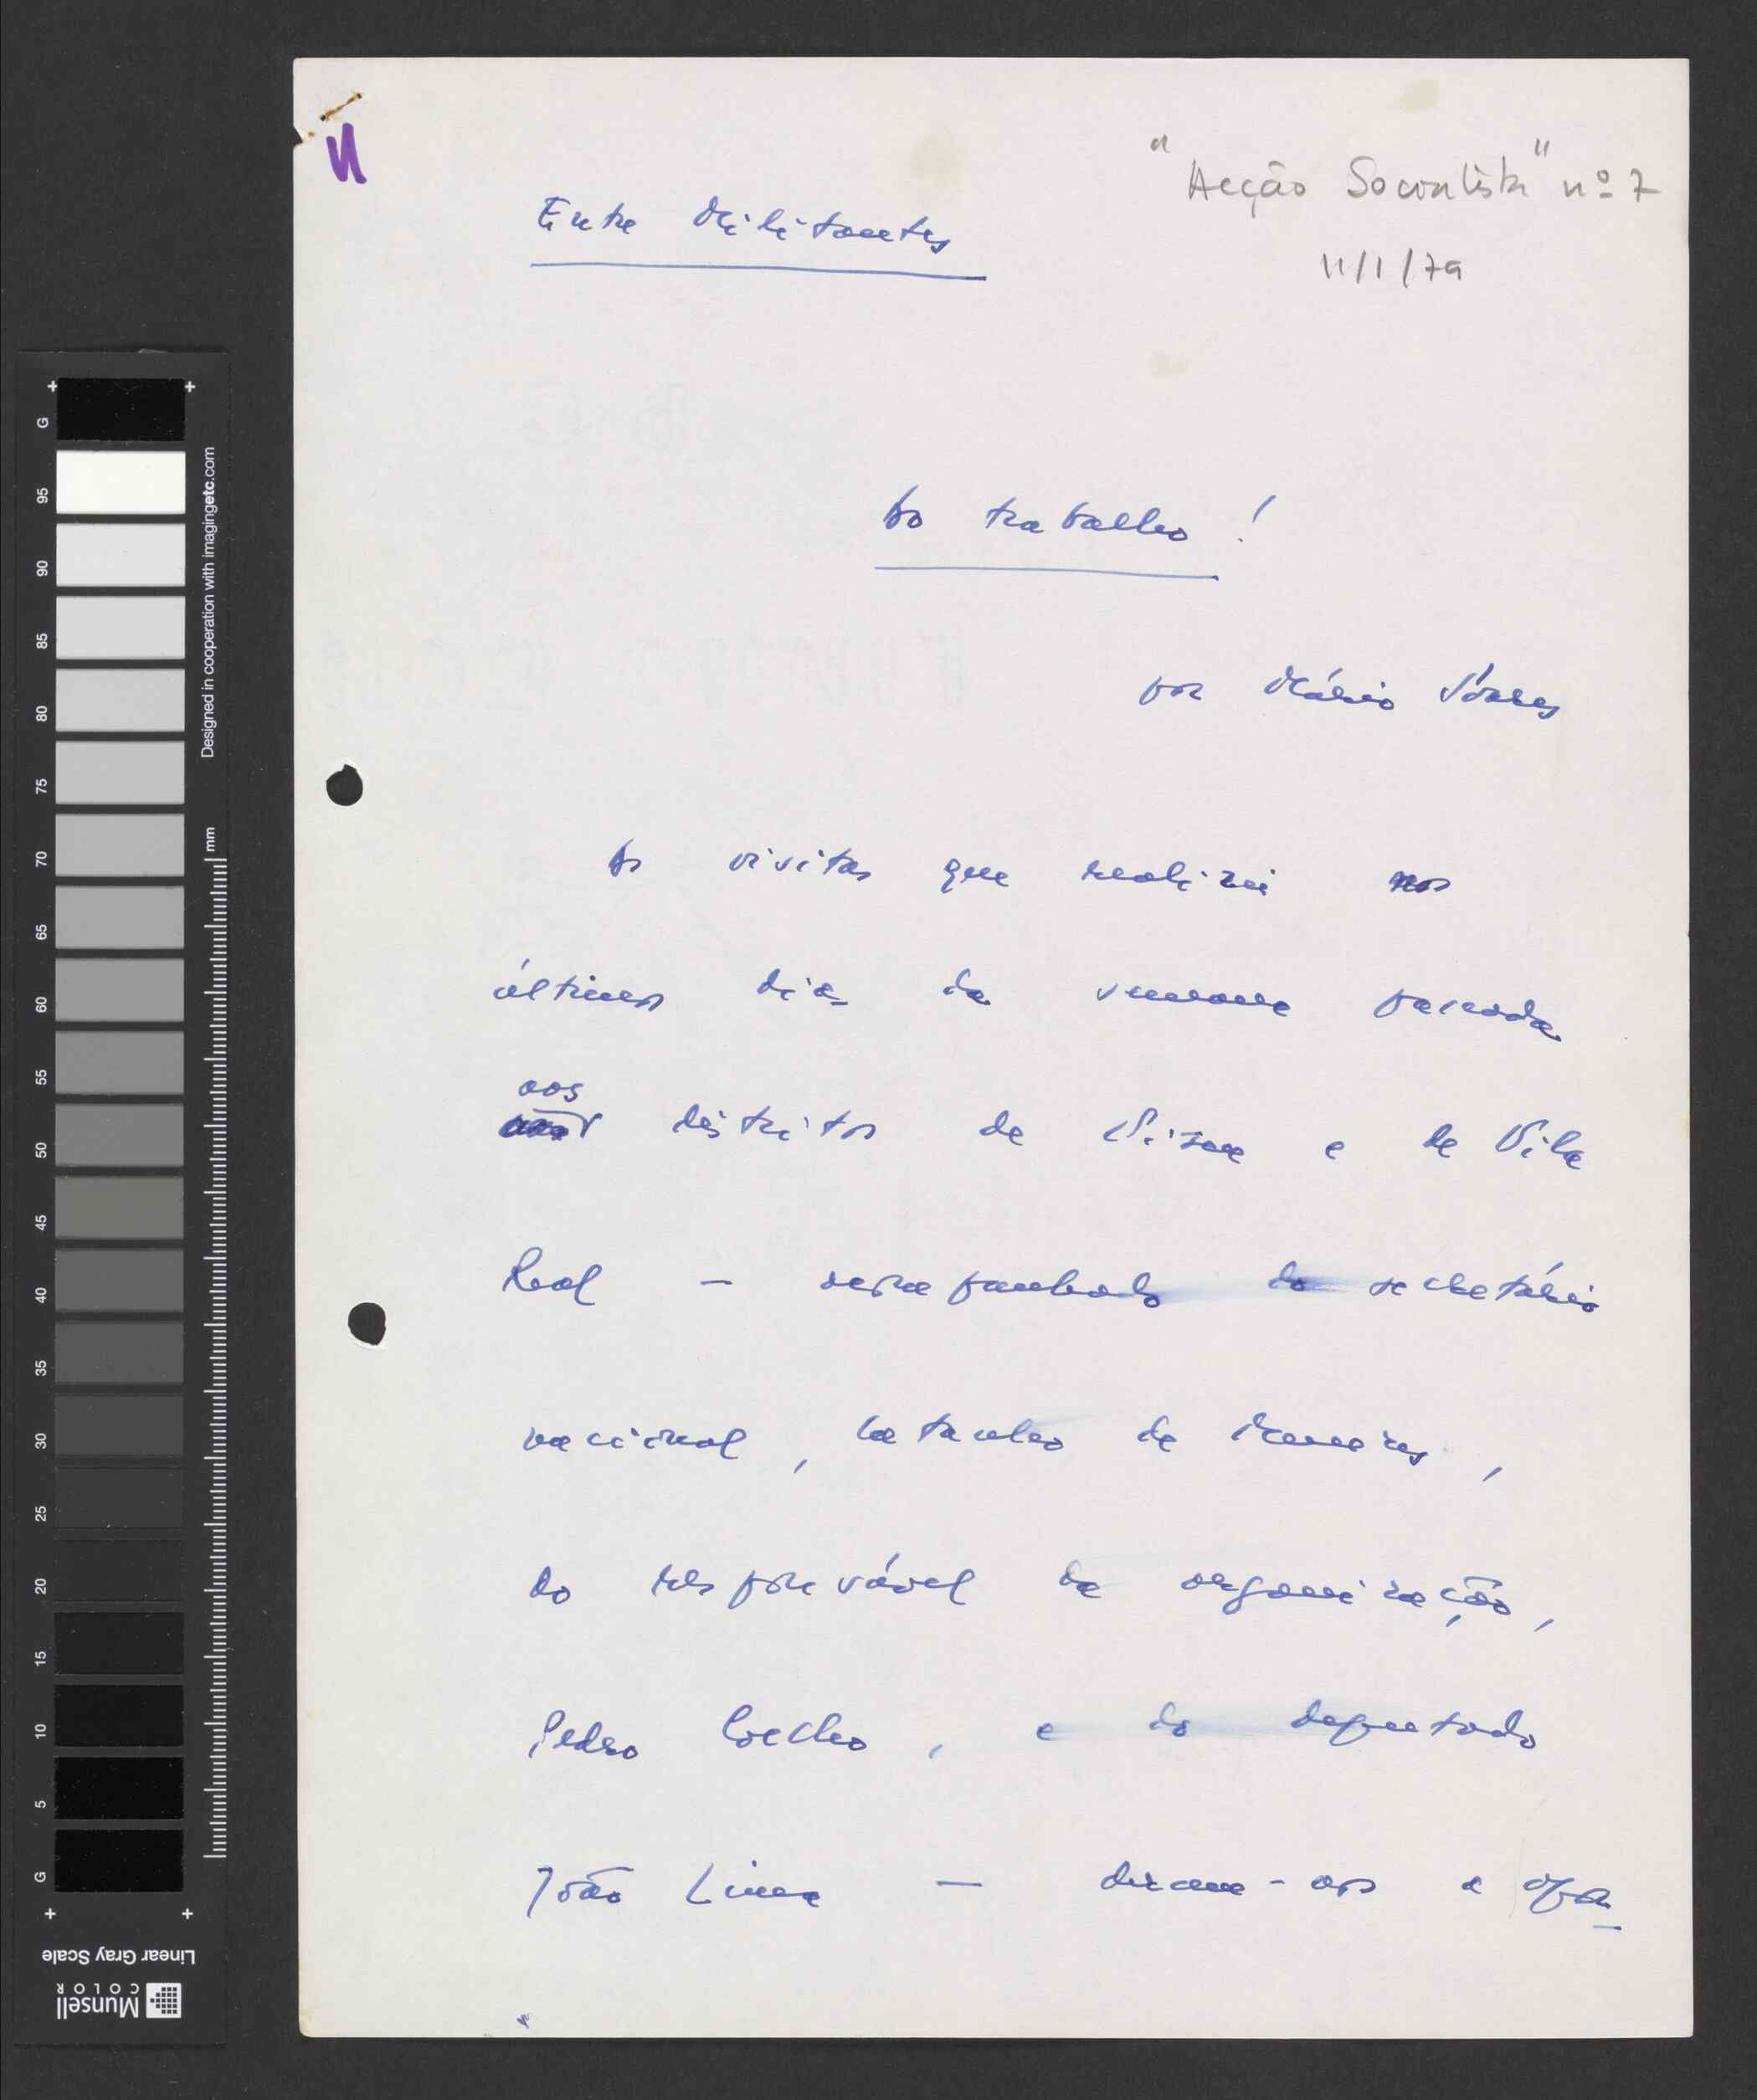 "Acção Socialista" nº 7
11/1/79
Entre Militantes
Ao trabalho!
por Mário Soares
As visitas que realizei nos
últimos dias da semana passada
aos
distritos de Viseu e de Vila
Real — acompanhado do secretário
nacional, de Menezes,
do responsável da organização,
Pedro Coelho, e do deputado
João Lima — deram-nos a opor
G 95 90 85 80 75 70 65 60 55 50 45 40 35 30 25 20 15 10 5 G
Designed in cooperation with imagingetc.com
mm
Linear Gray Scale
Munsell
COLOR